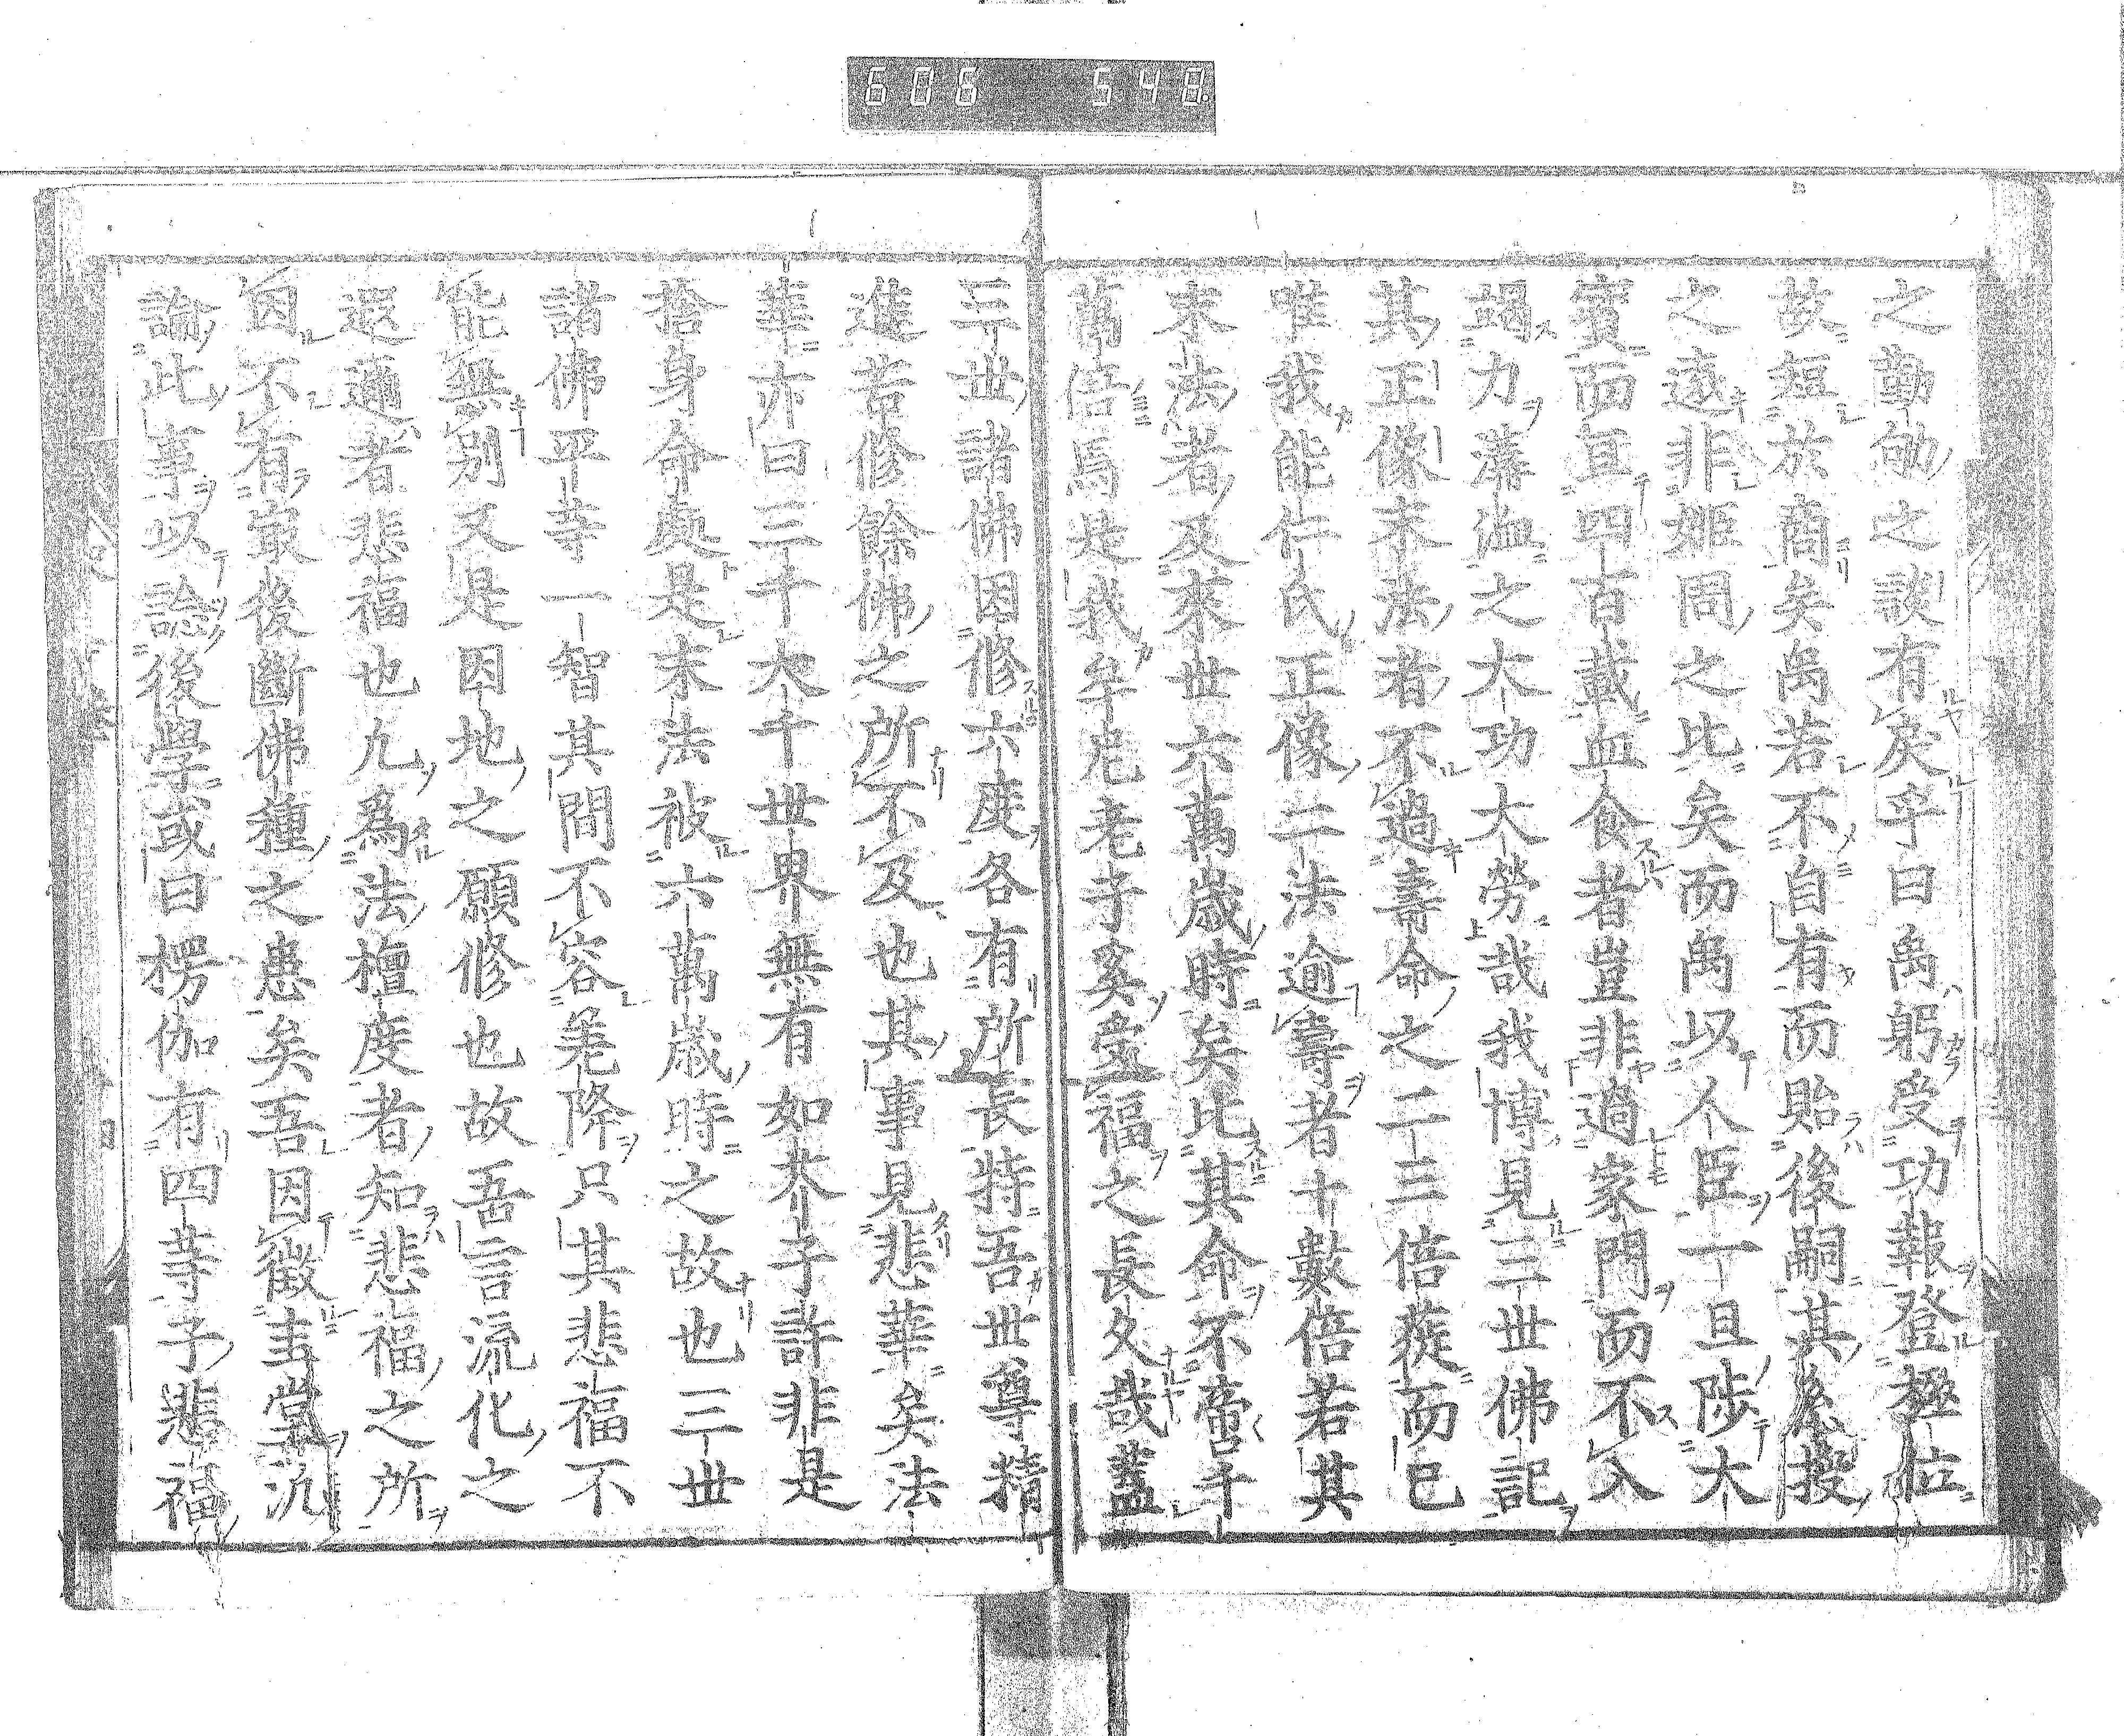 606 548
之勤劬之談有戾乎曰禹躬受功報登極位
故短於商矣禹若不自有而貽後嗣其後授
之遠非姬周之比矣而禹以人臣一旦陟大
寶而亘四百載血食者豈非過家門而不入
竭力溝洫之大功大勞哉我博見三世佛記
其正像末法者不過壽命之二三倍蓰而已
唯我能仁氏正像二法逾壽者十數倍若其
末法者及來世六萬歲時矣比其命不啻千
萬倍焉是我牟尼老子奚啻福之長久哉蓋
三世諸佛因修六度各有所長特吾世尊精
進苦修餘佛之所不及也其事見悲華矣法
華亦曰三千大千世界無有如芥子許非是
捨身命處是末法被六萬歲時之故也三世
諸佛平等一智其間不容差降只其悲福不
能無別又是因地之願修也故吾言流化之
遐邇者悲福也九爲法檀度者知悲福之所
因不有最後斷佛種之患矣吾因徵圭堂汎
論此事以諗後學或曰楞伽有四等子悲福